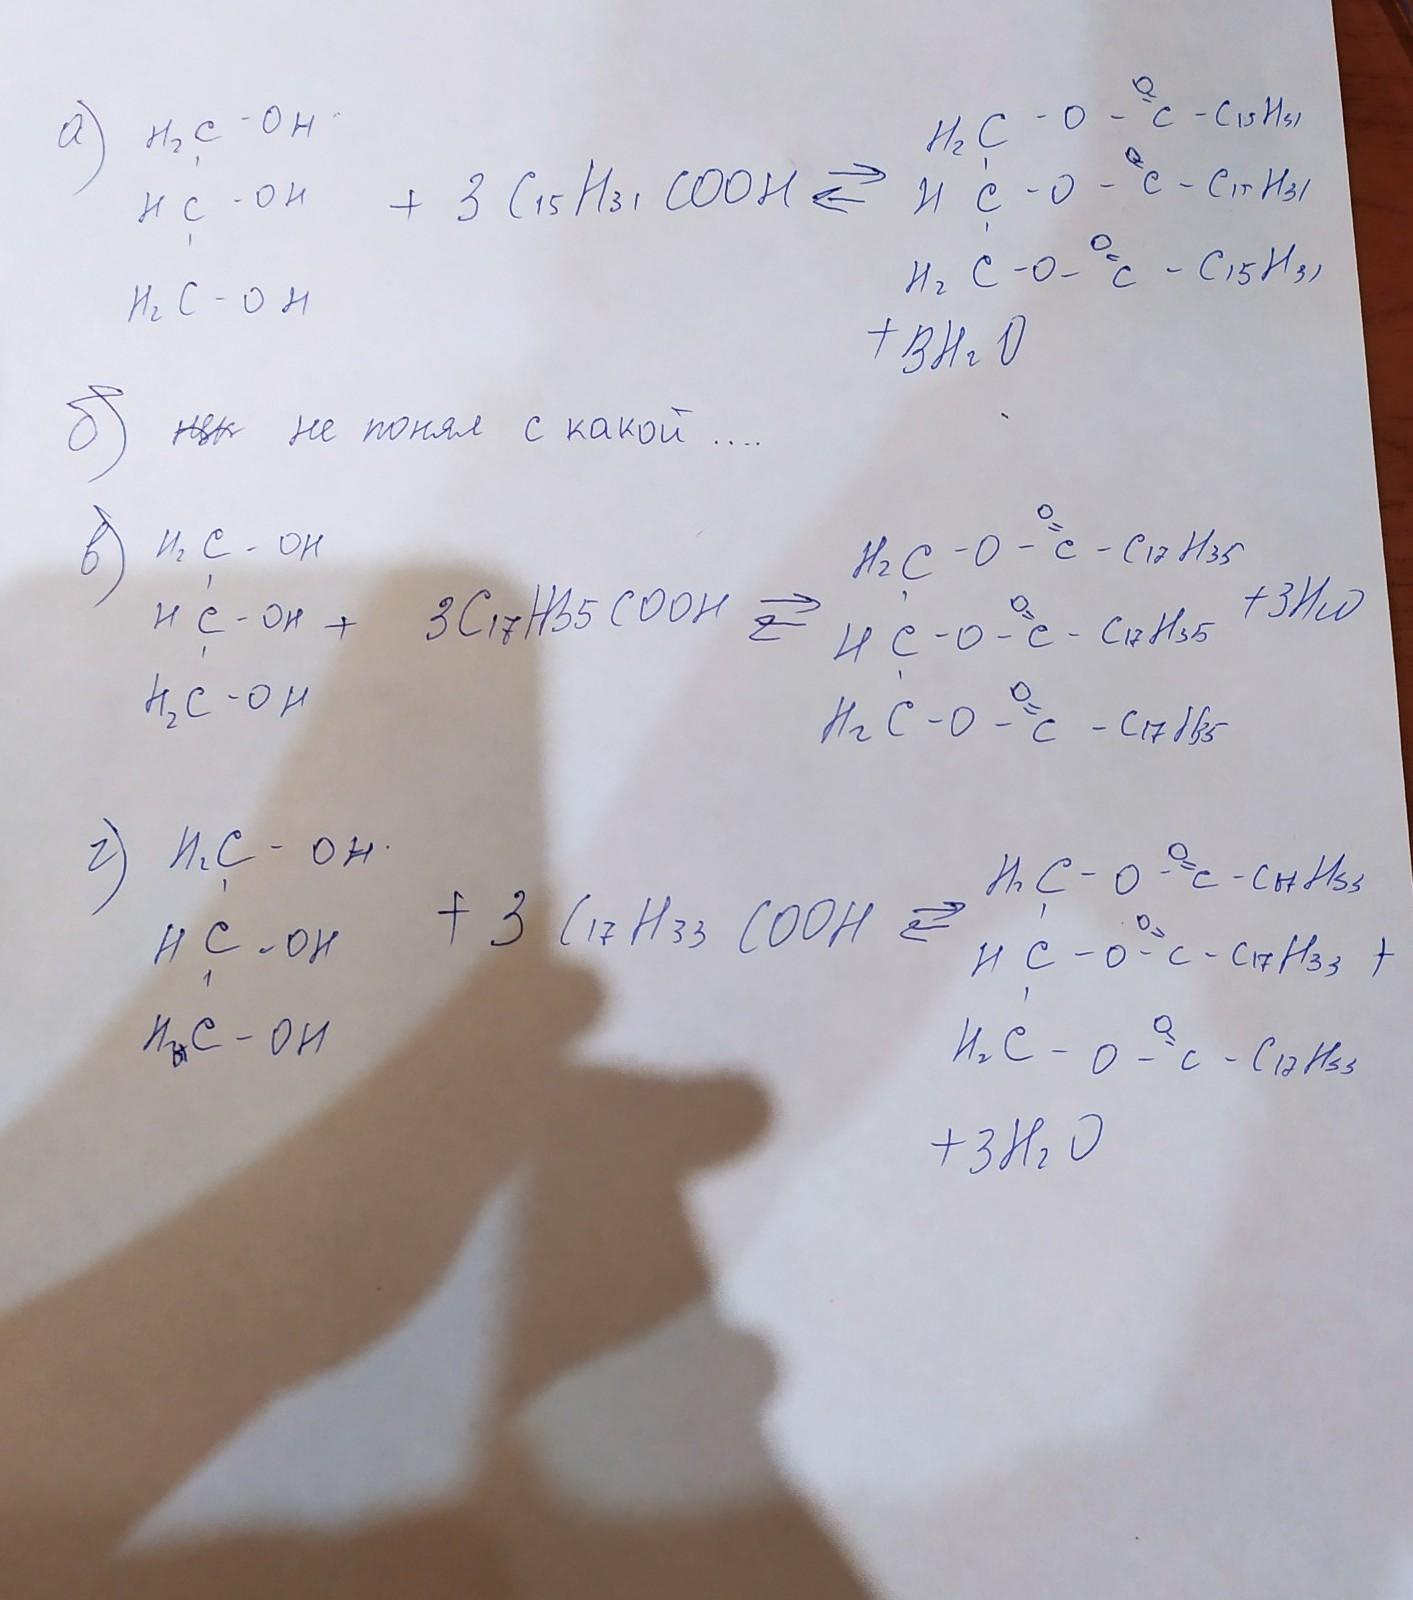 а) H₂C - OH O
HC - OH + 3 C₁₅H₃₁COOH ⇌ H₂C - O - C - C₁₅H₃₁
H₂C - OH O
HC - O - C - C₁₅H₃₁
O
H₂C - O - C - C₁₅H₃₁
+ 3H₂O
б) не понял с какой ....
в) H₂C - OH O
HC - OH + 3C₁₇H35COOH ⇌ H₂C - O - C - C₁₇H35
H₂C - OH O
HC - O - C - C₁₇H35 + 3H₂O
O
H₂C - O - C - C₁₇H35
г) H₂C - OH O
HC - OH + 3 C₁₇H₃₃COOH ⇌ H₂C - O - C - C₁₇H₃₃
H₂C - OH O
HC - O - C - C₁₇H₃₃ +
O
H₂C - O - C - C₁₇H₃₃
+ 3H₂O